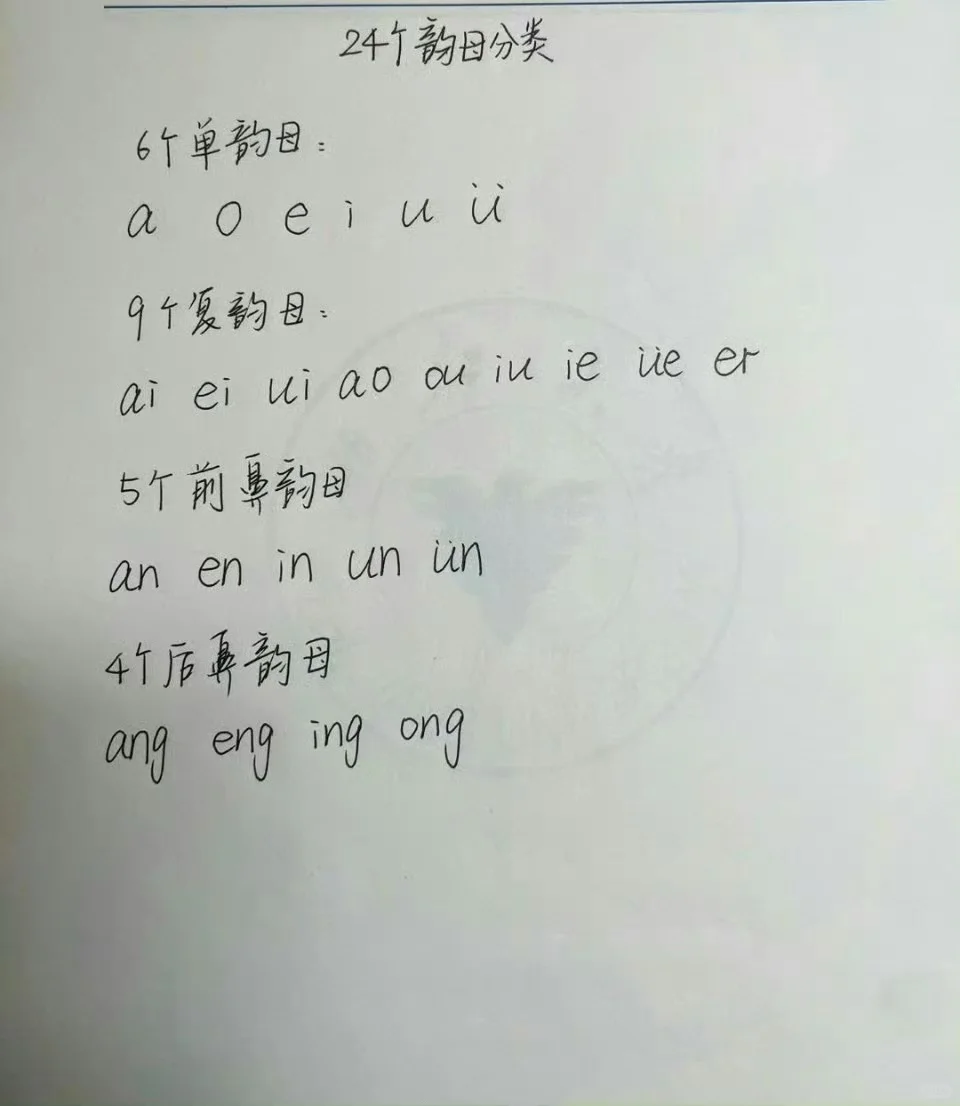 24个韵母分类
6个单韵母：
a o e i u ü
9个复韵母：
ai ei ui ao ou iu ie üe er
5个前鼻韵母
an en in un ün
4个后鼻韵母
ang eng ing ong